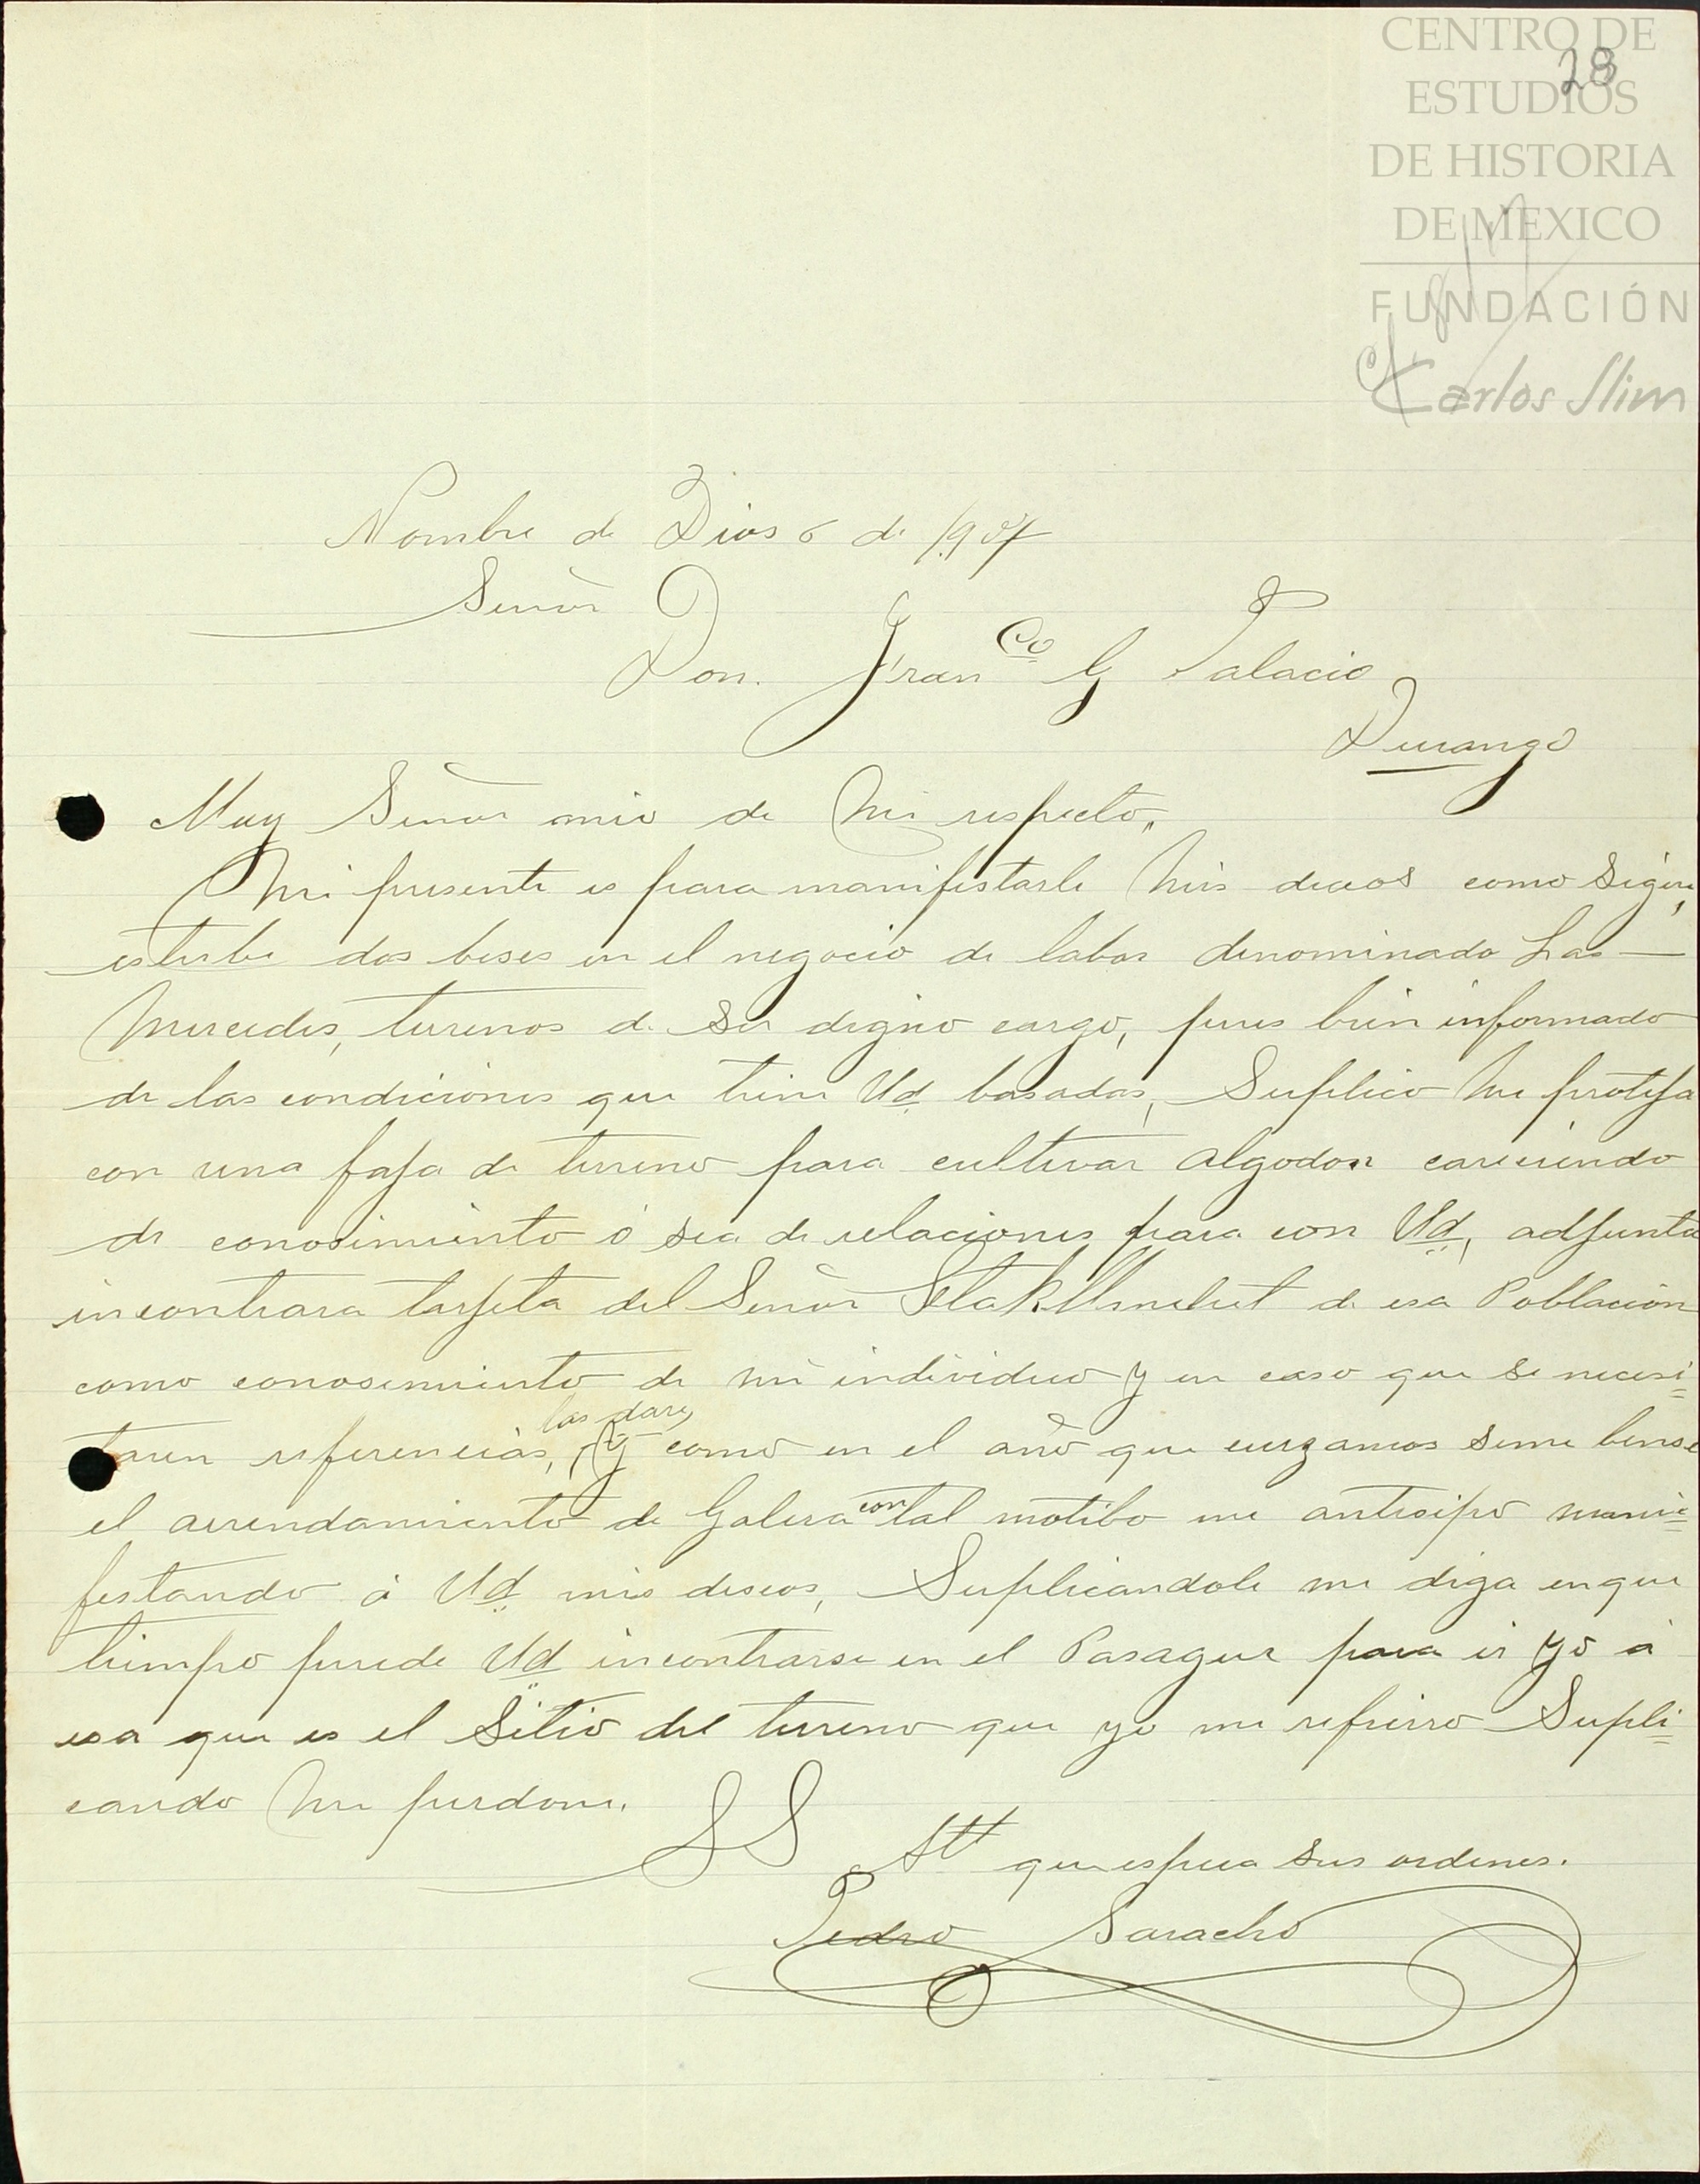 CENTRO DE
28
ESTUDIOS
DE HISTORIA
DE MEXICO
FUNDACIÓN
Carlos Slim
Nombre de Dios 6 de 1907
Señor
Don. Franco G Palacio
Durango
Muy Señor mio de Mi respecto,,
Mi presente es para manifestarle Mis deceos como Sigue,
estube dos beses en el negocio de labor denominado Las
Mercedes, terrenos de Su digno cargo, pues bien informado
de las condiciones que tiene Ud basadas, Suplico Me proteja
con una faja de terreno para cultivar algodon careciendo
de conosimiento ó sea de relaciones para con Ud, adjunta
encontrara tarjeta del Señor de esa Poblacion
como conosimiento de mi individuo y en caso que se necesi=
taren referencias, las dare, y como en el año que cruzamos seme bense
el arrendamiento de Galera con tal motibo me antisipo mani=
festando á Ud mis deseos, Suplicandole me diga enque
tiempo puede Ud encontrarse en el Pasague para ir yo á
esa que es el Sitio del terreno que yo me refierro Supli=
cando Me perdone.
SS Att que espera sus ordenes.
Pedro Saracho